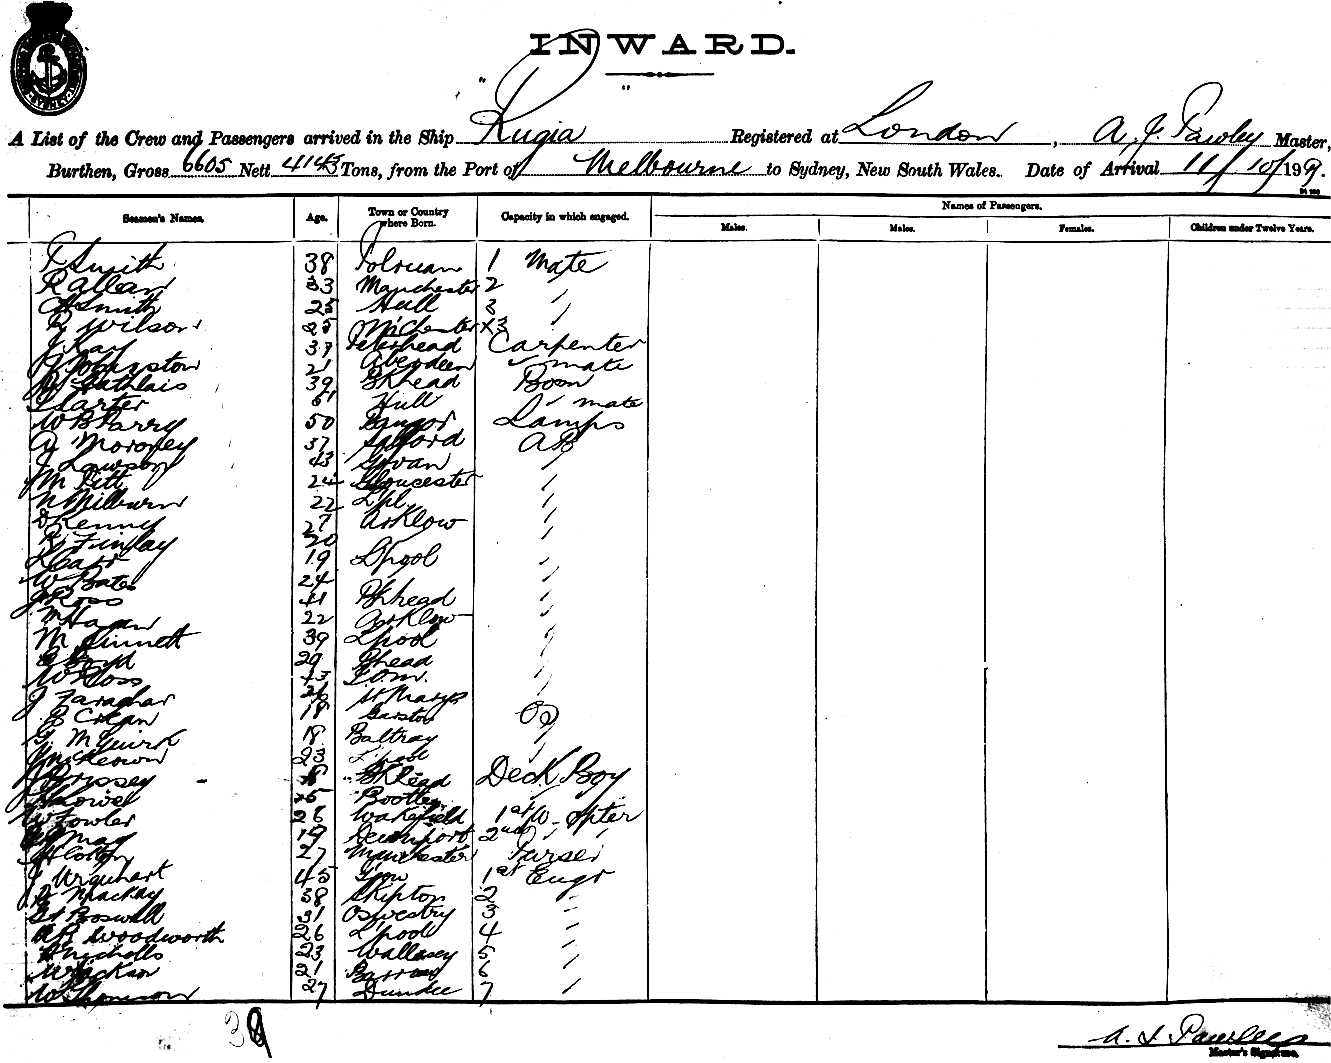 INWARD.
A List of the Crew and Passengers arrived in the Ship "Rugia" Registered at London, A J Pawley Master,
Burthen, Gross 6605 Nett 4143 Tons, from the Port of Melbourne to Sydney, New South Wales. Date of Arrival 11/10/199.
Names of Passengers.
Seamen's Names. Age. Town or Country where Born. Capacity in which engaged. Males. Males. Females. Children under Twelve Years.
Smith 38 Polruan 1 Mate
R Allan 33 Manchester 2 "
A Smith 25 Hull 3 "
R Wilson 25 M'Chester X3
J Kay 37 Peterhead Carpenter
Johnston 21 Aberdeen " mate
39 B'head Bosn
Carter Hull " mate
W B Parry 50 Bangor Lamps
A Moroney 37 Salford AB
J Lawson 43 Govan "
M Pitt 24 Gloucester "
N Milburn 22 Lpl "
D Kenny 27 Arklow "
R Finlay 20
Carr 19 L'pool "
W Bates 24 "
J Ross 41 B'khead "
M Hagan 22 Arklow "
M Sinnett 39 L'pool "
Boyd 29 B'head "
W Ross 43 I.O.M. "
J Faragher 26 St Marys "
Crean 18 Garston OS
M Guirk 18 Baltray "
McKeown 23 L'pool "
18 B'khead Deck Boy
15 Bootle "
W Fowler 26 Wakefield 1st W
19 Devonport 2nd " "
27 Manchester Purser
J Urquhart 45 1st Engr
Mackay 38 Skipton 2 "
Boswell 31 Oswestry 3 "
A R Woodworth 26 L'pool 4 "
Nicholls 23 Wallasey 5 "
W Jackson 21 Barrow 6 "
W Thomson 27 Dundee 7 "
39
A. J. Pawley
Master's Signature.